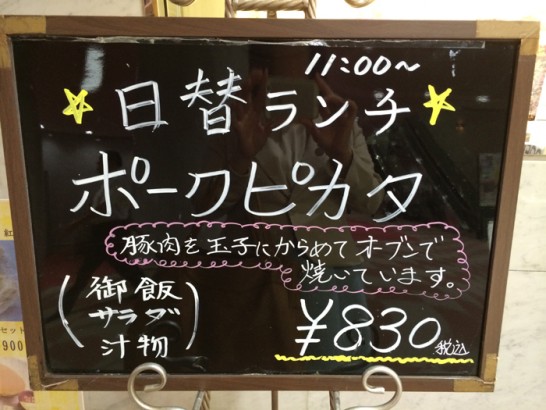 11:00〜
日替ランチ
ポークピカタ
豚肉を玉子にからめてオーブンで
焼いています。
御飯
サラダ
汁物
¥830税込
紅
セット
900